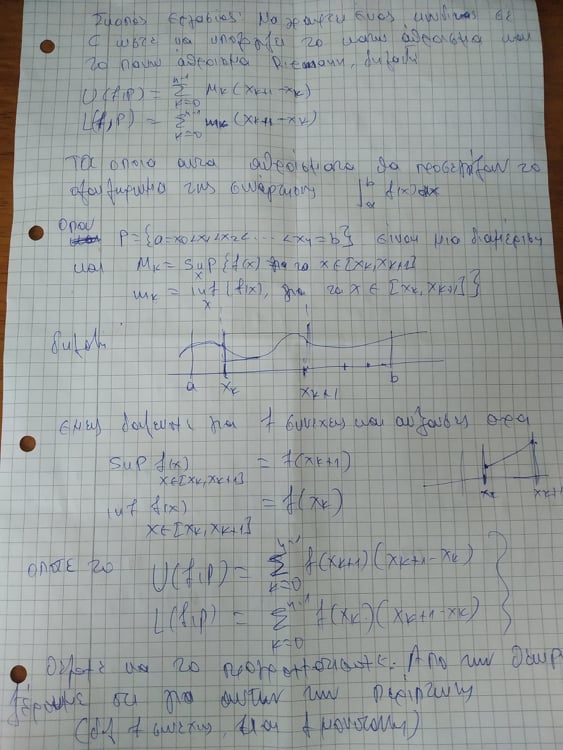 Σκοπος εργασιας: Να γραφτει ενας κωδικας σε
C ωστε να υπολογιζει το κατω αθροισμα και
το πανω αθροισμα Riemann, δηλαδη
U(f,P) = Σ_{k=0}^{n-1} M_k (x_{k+1} - x_k)
L(f,P) = Σ_{k=0}^{n-1} m_k (x_{k+1} - x_k)
Τα οποια αυτα αθροισματα θα προσεγγιζουν το
ολοκληρωμα της συναρτησης ∫_a^b f(x) dx
οπου
P = {a = x_0 < x_1 < x_2 < ... < x_n = b} ειναι μια διαμεριση
και M_k = sup_x {f(x) για το x ∈ [x_k, x_{k+1}]
m_k = inf_x {f(x), για το x ∈ [x_k, x_{k+1}]}
δηλαδη
a x_k x_{k+1} b
για f συνεχης και αυξουσα αρα
sup f(x) = f(x_{k+1})
x ∈ [x_k, x_{k+1}]
x_k x_{k+1}
inf f(x) = f(x_k)
x ∈ [x_k, x_{k+1}]
οποτε το U(f,P) = Σ_{k=0}^{n-1} f(x_{k+1}) (x_{k+1} - x_k)
L(f,P) = Σ_{k=0}^{n-1} f(x_k) (x_{k+1} - x_k)
να το Απο την θεωρ
ξερουμε οτι για αυτην την περιπτωση
(δλδ f συνεχης, και f μονοτονη)